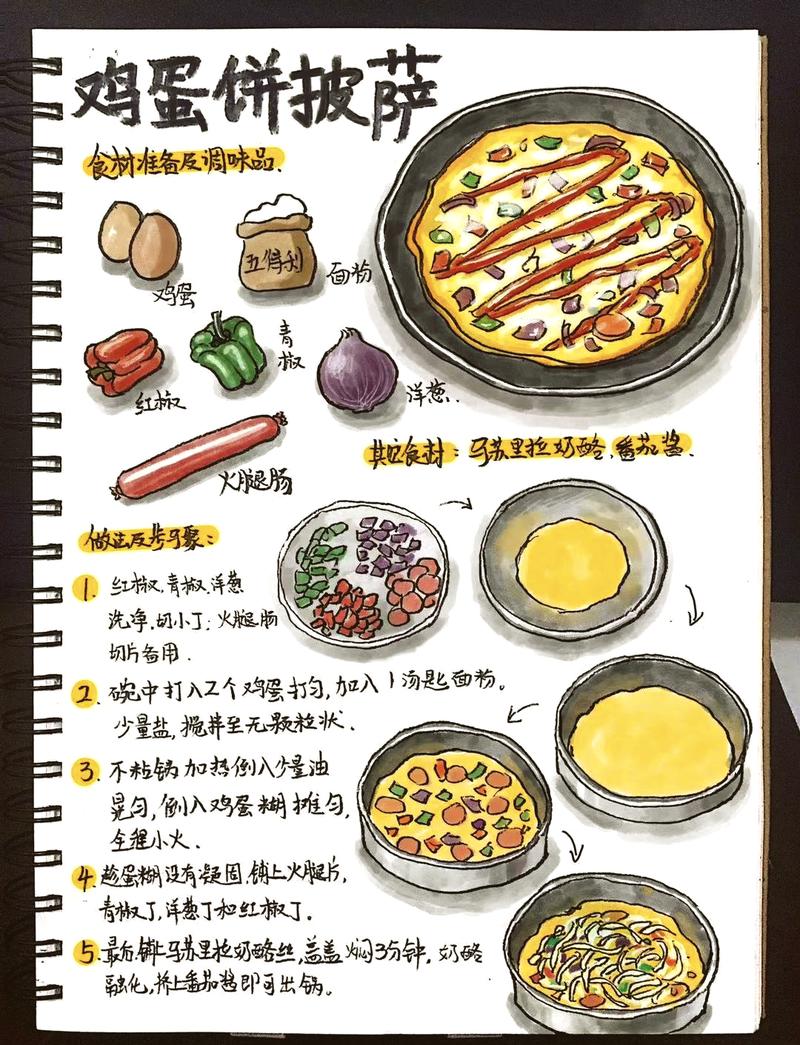 鸡蛋饼披萨
食材准备及调味品.
鸡蛋
五得利
面粉
红椒
青椒
洋葱.
火腿肠
其它食材：马苏里拉奶酪,番茄酱.
做法及步骤：
1. 红椒,青椒,洋葱
洗净,切小丁；火腿肠
切片备用.
2. 碗中打入2个鸡蛋打匀,加入1汤匙面粉.
少量盐,搅拌至无颗粒状.
3. 不粘锅加热倒入少量油
晃匀,倒入鸡蛋糊摊匀,
全程小火.
4. 趁蛋糊没有凝固,铺上火腿片,
青椒丁,洋葱丁和红椒丁.
5. 最后铺上马苏里拉奶酪丝,盖盖焖3分钟,奶酪
融化,挤上番茄酱即可出锅.